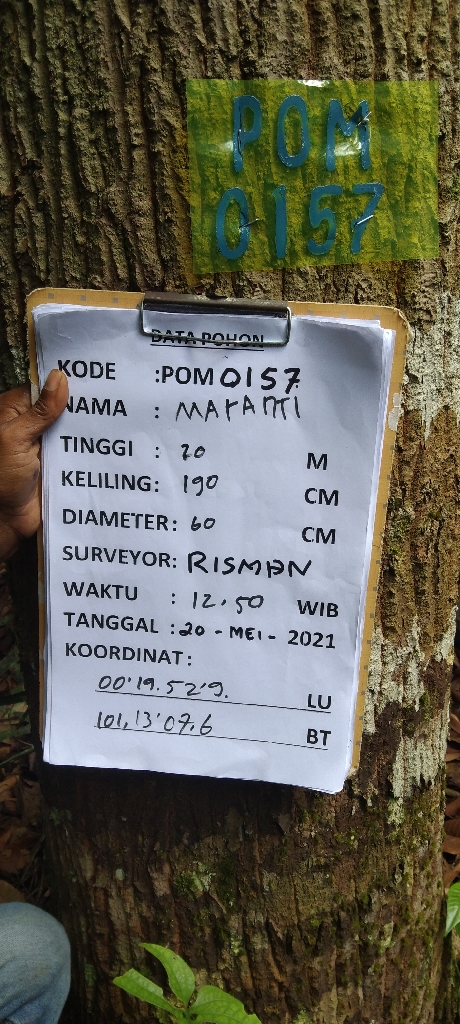 POM
0157
DATA POHON
KODE :POM 0157
NAMA : MARANTI
TINGGI : 20 M
KELILING: 190 CM
DIAMETER: 60 CM
SURVEYOR: RISMAN
WAKTU : 12.50 WIB
TANGGAL : 20 - MEI - 2021
KOORDINAT:
00°19.52'9. LU
101,13'07.6 BT